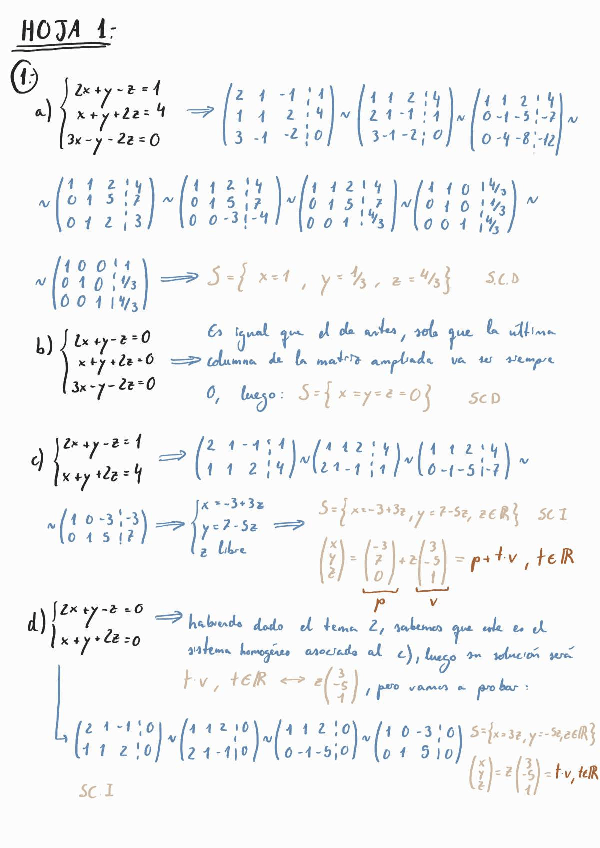 HOJA 1:
1:
a) { 2x+y-z=1 ; x+y+2z=4 ; 3x-y-2z=0 ⟹ ( 2 1 -1 ¦ 1 ; 1 1 2 ¦ 4 ; 3 -1 -2 ¦ 0 ) ~ ( 1 1 2 ¦ 4 ; 2 1 -1 ¦ 1 ; 3 -1 -2 ¦ 0 ) ~ ( 1 1 2 ¦ 4 ; 0 -1 -5 ¦ -7 ; 0 -4 -8 ¦ -12 ) ~
~ ( 1 1 2 ¦ 4 ; 0 1 5 ¦ 7 ; 0 1 2 ¦ 3 ) ~ ( 1 1 2 ¦ 4 ; 0 1 5 ¦ 7 ; 0 0 -3 ¦ -4 ) ~ ( 1 1 2 ¦ 4 ; 0 1 5 ¦ 7 ; 0 0 1 ¦ 4/3 ) ~ ( 1 1 0 ¦ 4/3 ; 0 1 0 ¦ 1/3 ; 0 0 1 ¦ 4/3 ) ~
~ ( 1 0 0 ¦ 1 ; 0 1 0 ¦ 1/3 ; 0 0 1 ¦ 4/3 ) ⟹ S={ x=1 , y=1/3 , z=4/3 } S.C.D
b) { 2x+y-z=0 ; x+y+2z=0 ; 3x-y-2z=0 ⟹
Es igual que el de antes, solo que la última
columna de la matriz ampliada va ser siempre
0, luego: S={ x=y=z=0 } SCD
c) { 2x+y-z=1 ; x+y+2z=4 ⟹ ( 2 1 -1 ¦ 1 ; 1 1 2 ¦ 4 ) ~ ( 1 1 2 ¦ 4 ; 2 1 -1 ¦ 1 ) ~ ( 1 1 2 ¦ 4 ; 0 -1 -5 ¦ -7 ) ~
~ ( 1 0 -3 ¦ -3 ; 0 1 5 ¦ 7 ) ⟹ { x=-3+3z ; y=7-5z ; z libre ⟹ S={x=-3+3z, y=7-5z, z∈ℝ} SCI
( x ; y ; z ) = ( -3 ; 7 ; 0 ) + z ( 3 ; -5 ; 1 ) = p+t·v, t∈ℝ
p v
d) { 2x+y-z=0 ; x+y+2z=0 ⟹ habiendo dado el tema 2, sabemos que este es el
sistema homogéneo asociado al c), luego su solución será
t·v, t∈ℝ ⟷ z ( 3 ; -5 ; 1 ) , pero vamos a probar:
( 2 1 -1 ¦ 0 ; 1 1 2 ¦ 0 ) ~ ( 1 1 2 ¦ 0 ; 2 1 -1 ¦ 0 ) ~ ( 1 1 2 ¦ 0 ; 0 -1 -5 ¦ 0 ) ~ ( 1 0 -3 ¦ 0 ; 0 1 5 ¦ 0 ) S={x=3z, y=-5z, z∈ℝ}
( x ; y ; z ) = z ( 3 ; -5 ; 1 ) = t·v, t∈ℝ
SC.I